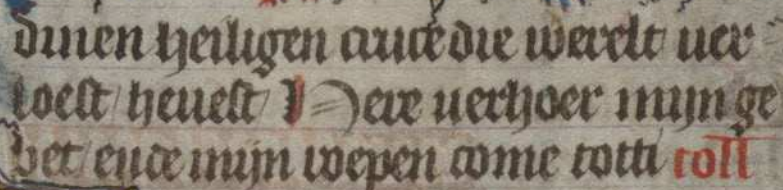 dinen heiligen cruce die werelt uer
loest / heuest / Here uerhoer mijn ge
bet / ende mijn wepen come totti coll